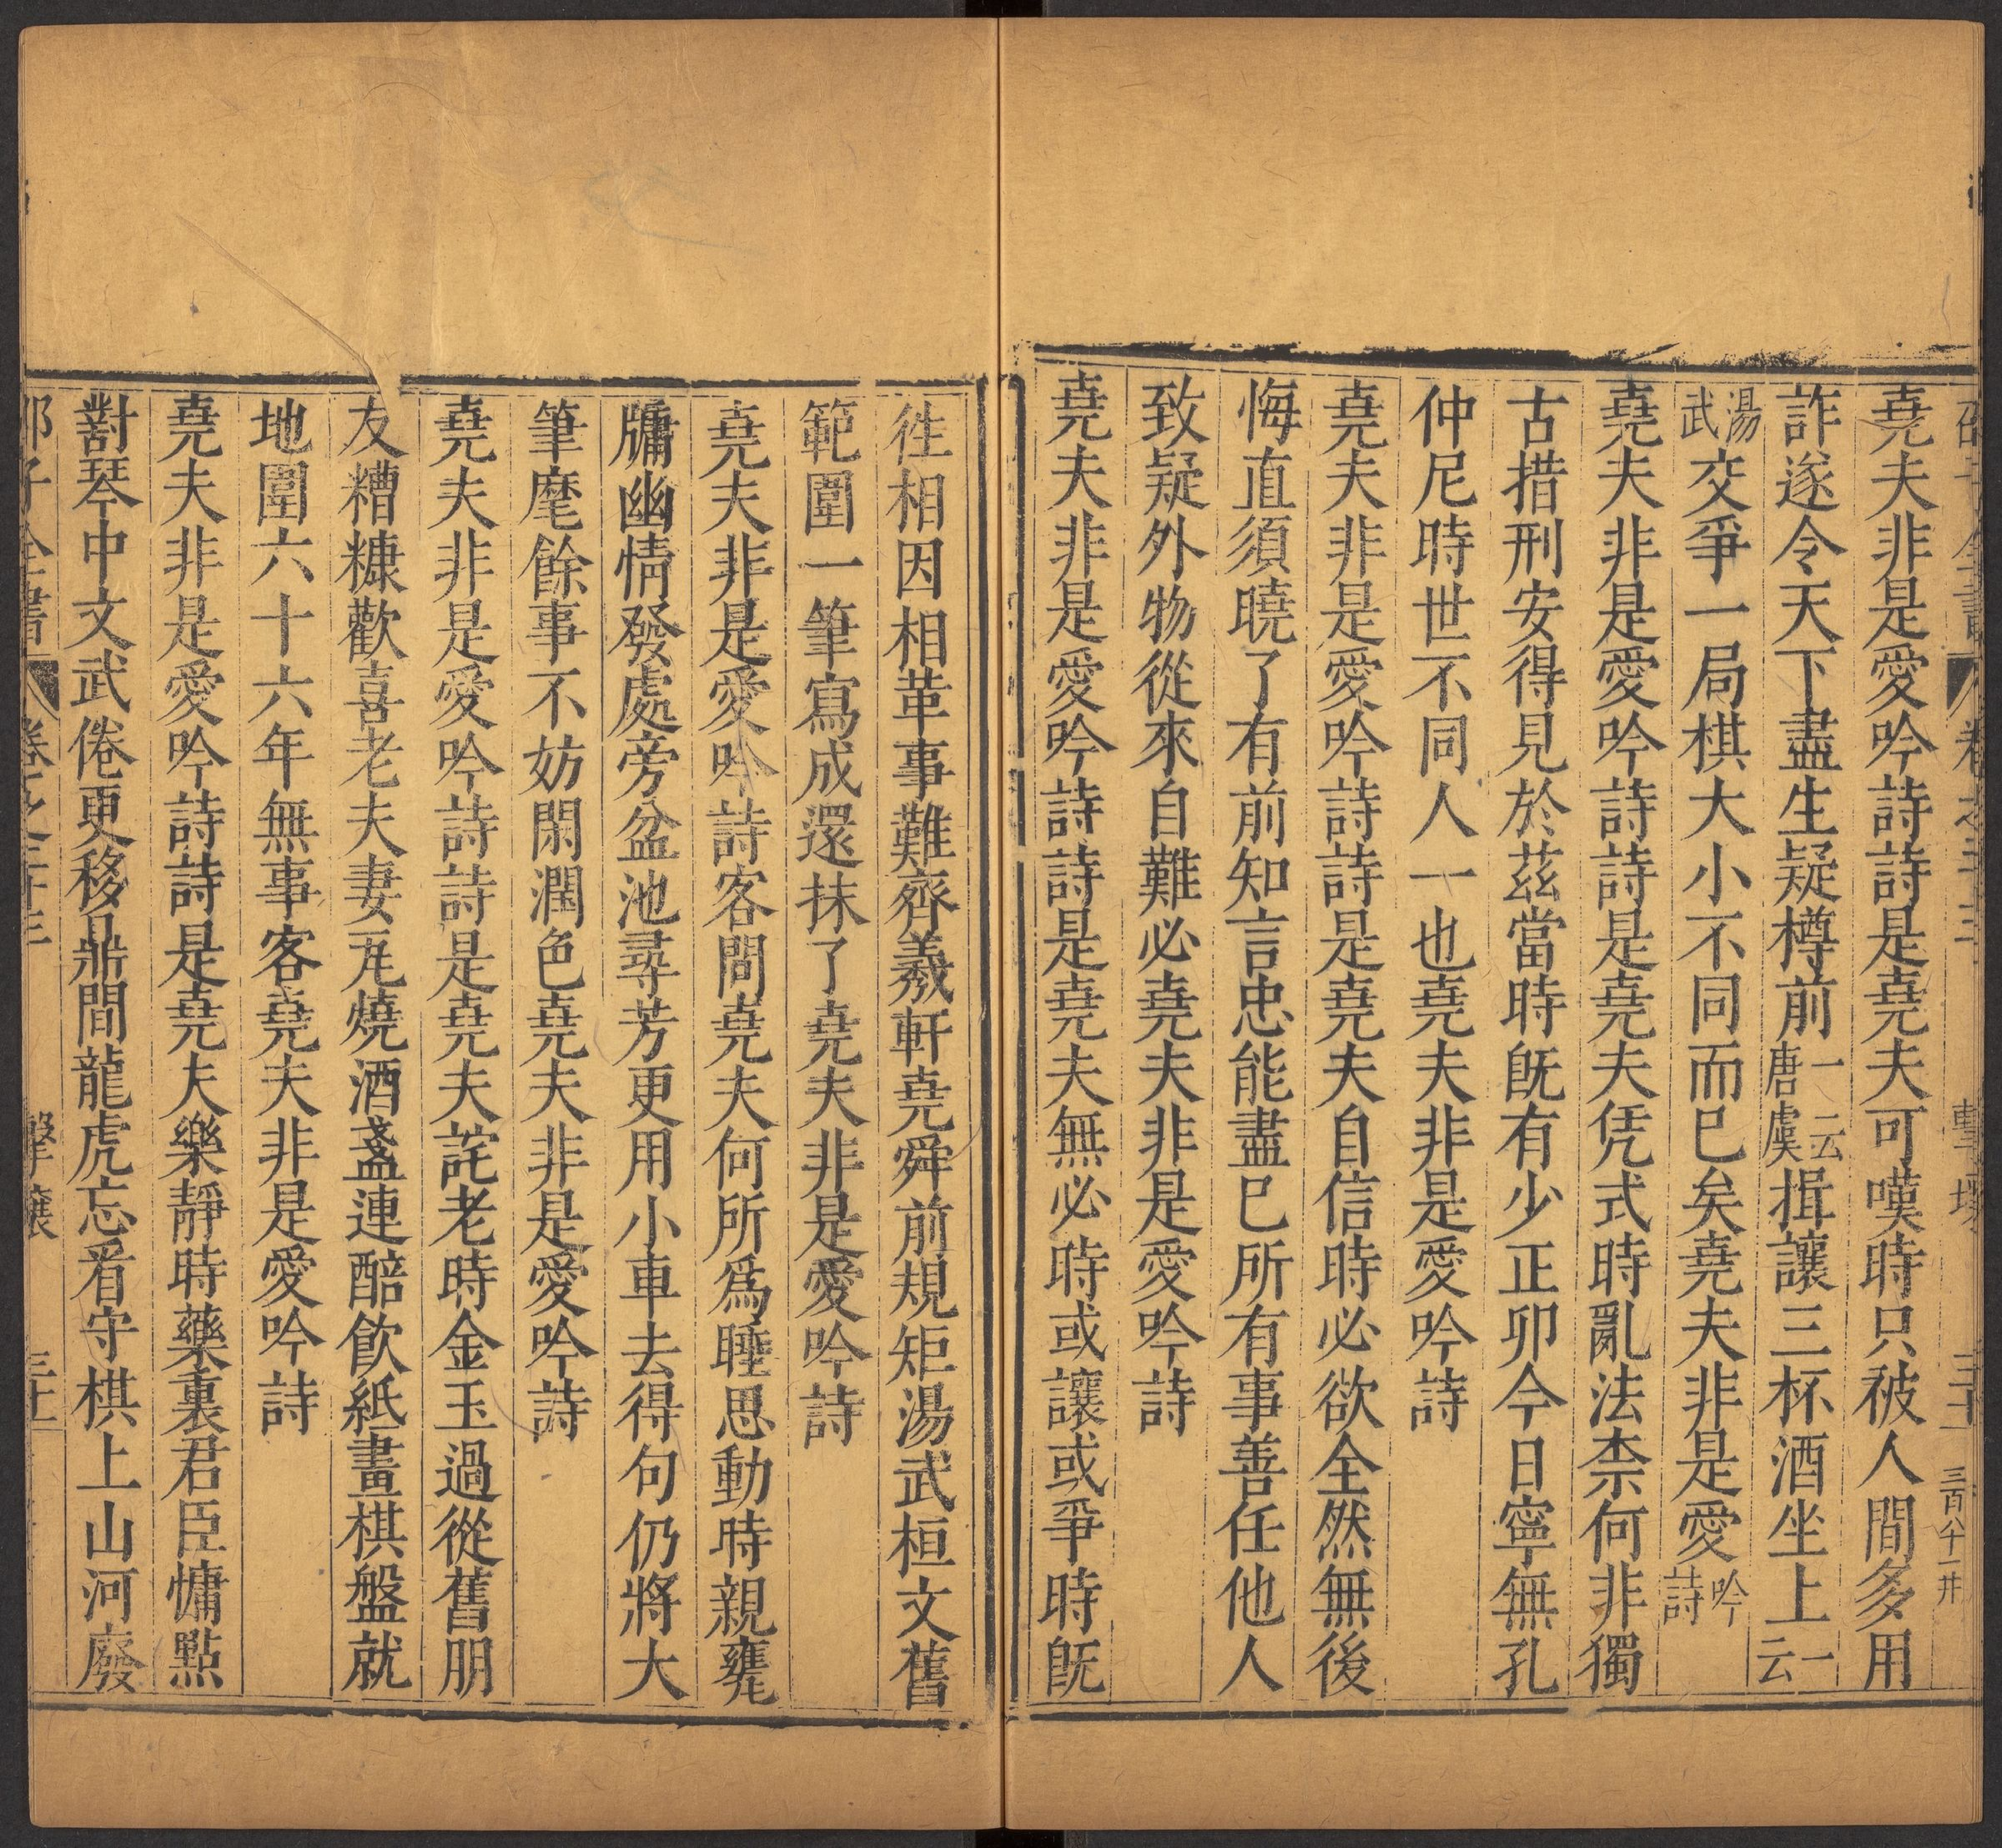 堯夫非是愛吟詩詩是堯夫可嘆時只被人間多用
詐遂令天下盡生疑樽前一云唐虞揖讓三杯酒坐上一云
湯武交爭一局棋大小不同而已矣堯夫非是愛吟詩
堯夫非是愛吟詩詩是堯夫凭式時亂法柰何非獨
古措刑安得見於茲當時旣有少正卯今日寧無孔
仲尼時世不同人一也堯夫非是愛吟詩
堯夫非是愛吟詩詩是堯夫自信時必欲全然無後
悔直須曉了有前知言忠能盡已所有事善任他人
致疑外物從來自難必堯夫非是愛吟詩
堯夫非是愛吟詩詩是堯夫無必時或讓或爭時旣
徃相因相革事難齊羲軒堯舜前規矩湯武桓文舊
範圍一筆寫成還抹了堯夫非是愛吟詩
堯夫非是愛吟詩客問堯夫何所爲睡思動時親甕
牖幽情發處旁盆池尋芳更用小車去得句仍將大
筆麾餘事不妨閑潤色堯夫非是愛吟詩
堯夫非是愛吟詩詩是堯夫詫老時金玉過從舊朋
友糟糠歡喜老夫妻瓦燒酒盞連醅飲紙畫棋盤就
地圍六十六年無事客堯夫非是愛吟詩
堯夫非是愛吟詩詩是堯夫樂靜時藥裏君臣慵點
對琴中文武倦更移鼎間龍虎忘看守棋上山河廢